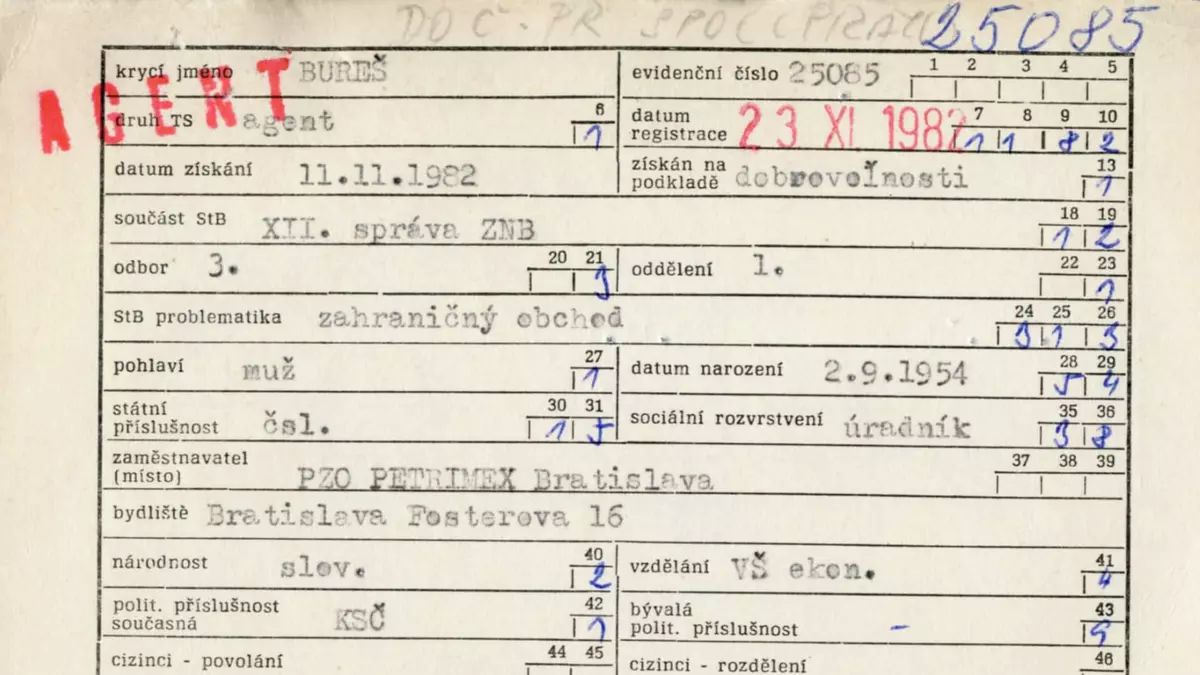 DOČ. PR SPOLUPRÁCU 25085
krycí jméno BUREŠ evidenční číslo 25085 1 2 3 4 5
AGENT
druh TS agent 6 1 datum registrace 23 XI. 1982 7 8 9 10 1 1 8 2
datum získání 11.11.1982 získán na podkladě dobrovoľnosti 13 1
součást StB XII. správa ZNB 18 19 1 2
odbor 3. 20 21 3 oddělení 1. 22 23 1
StB problematika zahraničný obchod 24 25 26 3 1 3
pohlaví muž 27 1 datum narození 2.9.1954 28 29 5 4
státní příslušnost čsl. 30 31 1 5 sociální rozvrstvení úradník 35 36 3 8
zaměstnavatel 37 38 39
(místo) PZO PETRIMEX Bratislava
bydliště Bratislava Fosterova 16
národnost slov. 40 2 vzdělání VŠ ekon. 41 4
polit. příslušnost současná KSČ 42 1 bývalá polit. příslušnost - 43 9
cizinci - povolání 44 45 cizinci - rozdělení 46